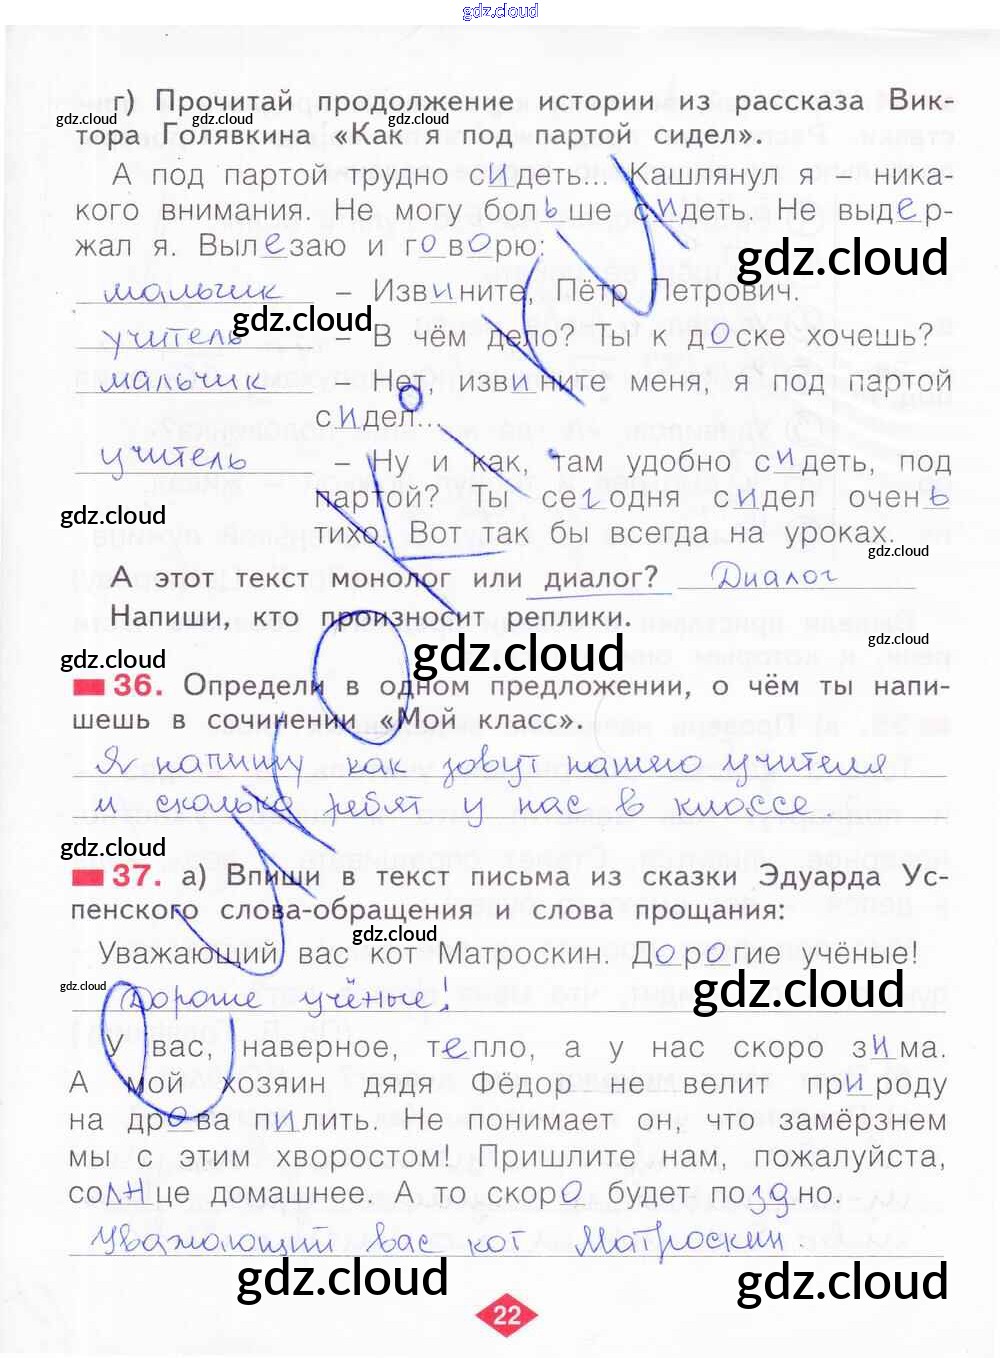 gdz.cloud
г) Прочитай продолжение истории из рассказа Вик-
gdz.cloud gdz.cloud gdz.cloud
тора Голявкина «Как я под партой сидел».
gdz.cloud gdz.cloud
А под партой трудно сидеть... Кашлянул я – ника-
кого внимания. Не могу больше сидеть. Не выдер-
жал я. Вылезаю и говорю:
gdz.cloud
мальчик – Извините, Пётр Петрович.
gdz.cloud
учитель – В чём дело? Ты к доске хочешь?
мальчик – Нет, извините меня, я под партой
сидел...
учитель – Ну и как, там удобно сидеть, под
партой? Ты сегодня сидел очень
gdz.cloud
тихо. Вот так бы всегда на уроках.
gdz.cloud
А этот текст монолог или диалог? Диалог
Напиши, кто произносит реплики.
gdz.cloud
gdz.cloud gdz.cloud
36. Определи в одном предложении, о чём ты напи-
шешь в сочинении «Мой класс».
Я напишу как зовут нашего учителя
и сколько ребят у нас в классе.
gdz.cloud
37. а) Впиши в текст письма из сказки Эдуарда Ус-
пенского слова-обращения и слова прощания:
gdz.cloud
Уважающий вас кот Матроскин. Дорогие учёные!
gdz.cloud gdz.cloud
Дорогие учёные!
У вас, наверное, тепло, а у нас скоро зима.
А мой хозяин дядя Фёдор не велит природу
на дрова пилить. Не понимает он, что замёрзнем
мы с этим хворостом! Пришлите нам, пожалуйста,
солнце домашнее. А то скоро будет поздно.
Уважающий вас кот Матроскин.
gdz.cloud gdz.cloud
22